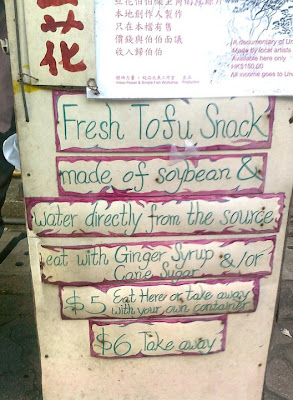 花
豆花伯伯
本地創作人製作
只在本檔有售
價錢與伯伯面議
收入歸伯伯
documentary of Un
Made by local artists
Available here only
HK$150.00
All income goes to Unc
Fresh Tofu Snack
made of soybean &
water directly from the source
eat with Ginger Syrup & /or
Cane Sugar
$5 Eat Here or take away
with your own container
$6 Take away